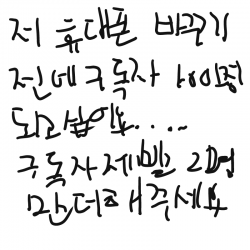 저 휴대폰 바꾸기
전에 구독자 100명
되고싶어요.....
구독자 제발 20명
만 더 해주세요